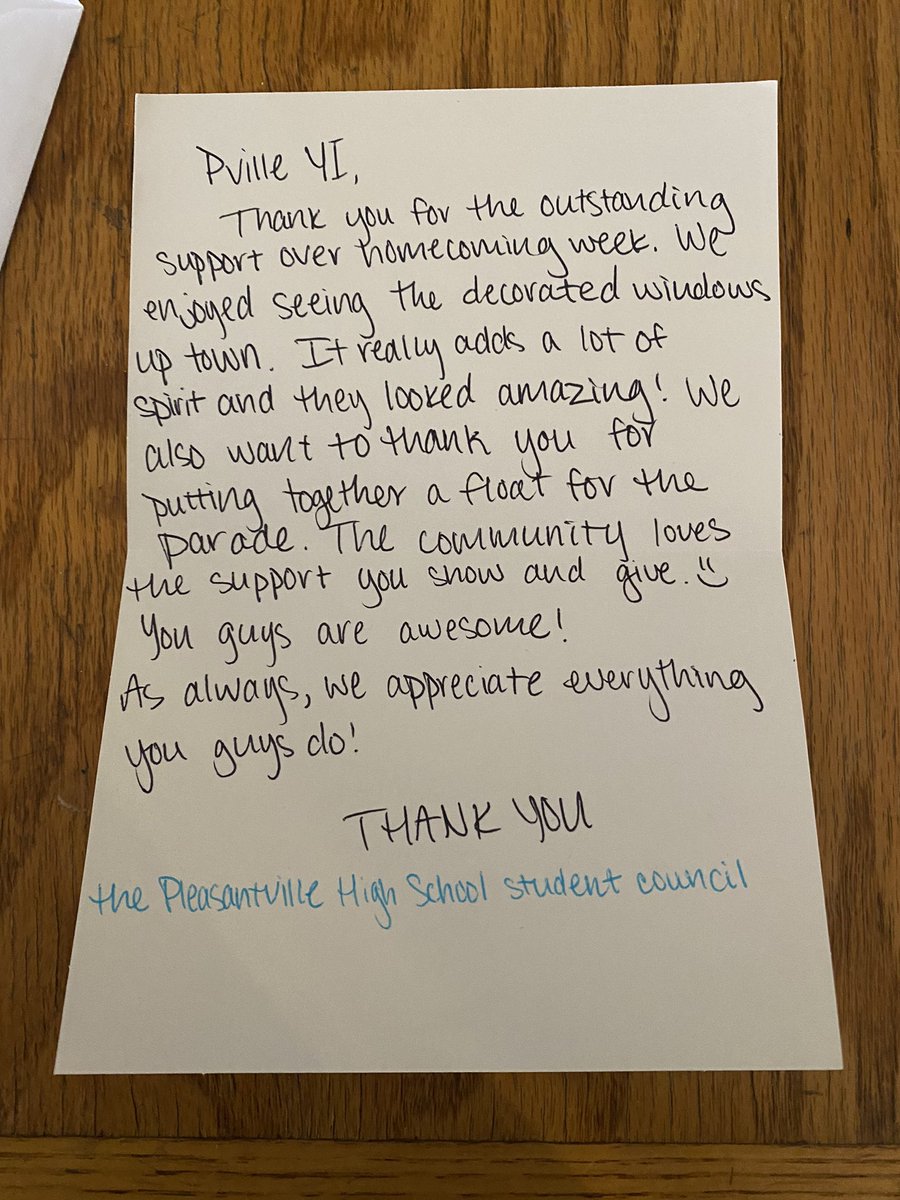 Pville YI,
Thank you for the outstanding
support over homecoming week. We
enjoyed seeing the decorated windows
up town. It really adds a lot of
spirit and they looked amazing! We
also want to thank you for
putting together a float for the
parade. The community loves
the support you show and give. :)
You guys are awesome!
As always, we appreciate everything
you guys do!
THANK YOU
the Pleasantville High School student council